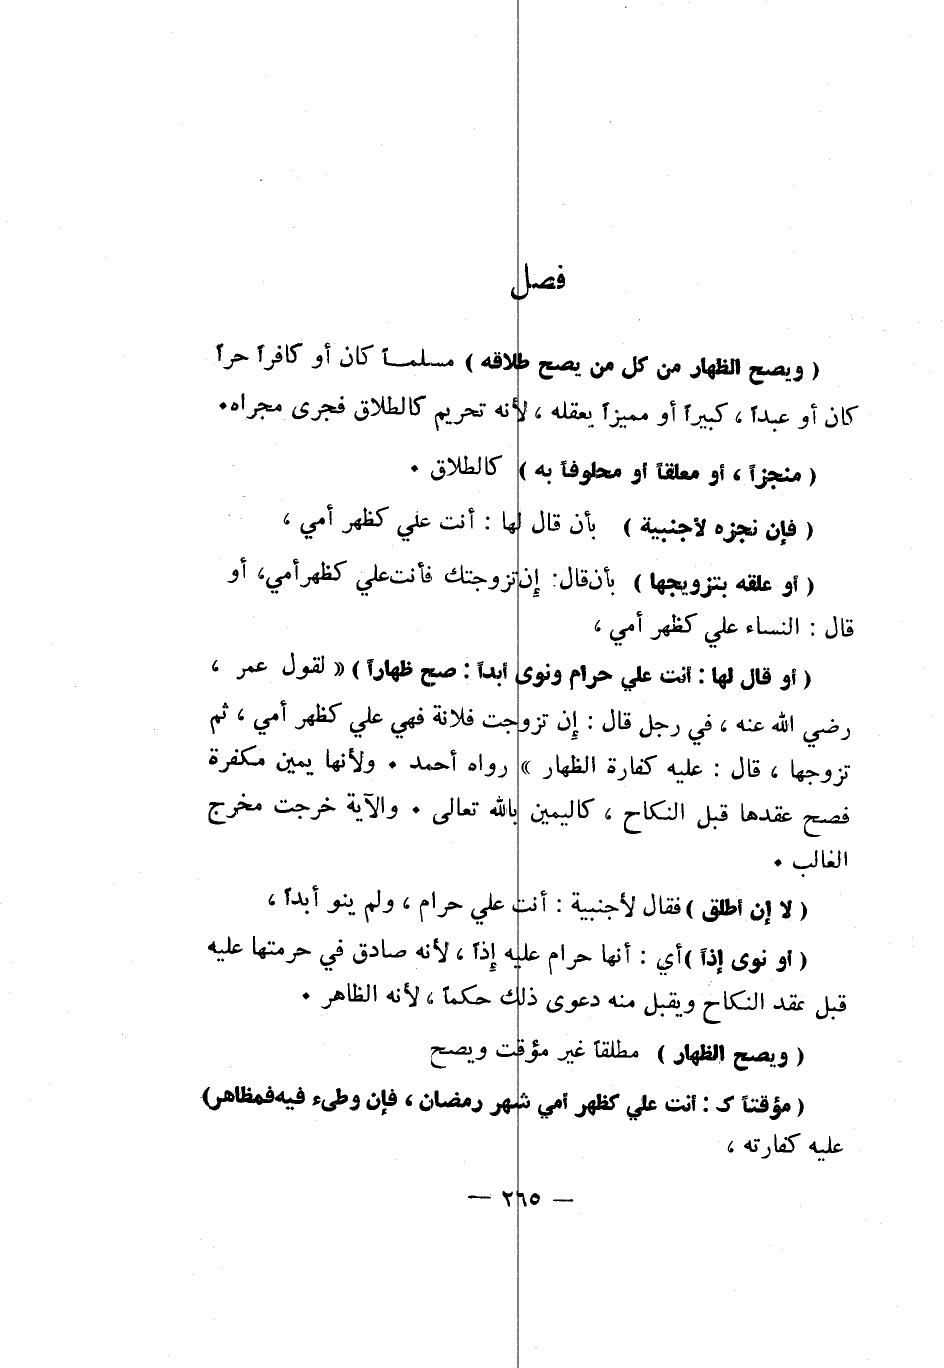 فصل
( ويصح الظهار من كل من يصح طلاقه ) مسلماً كان أو كافراً حراً
كان أو عبداً ، كبيراً أو مميزاً يعقله ، لأنه تحريم كالطلاق فجرى مجراه.
( منجزاً ، أو معلقاً أو محلوفاً به ) كالطلاق .
( فإن نجزه لأجنبية ) بأن قال لها : أنت علي كظهر أمي ،
( أو علقه بتزويجها ) بأن قال: إن تزوجتك فأنت علي كظهر أمي، أو
قال : النساء علي كظهر أمي ،
( أو قال لها : أنت علي حرام ونوى أبداً : صح ظهاراً ) « لقول عمر ،
رضي الله عنه ، في رجل قال : إن تزوجت فلانة فهي علي كظهر أمي ، ثم
تزوجها ، قال : عليه كفارة الظهار » رواه أحمد . ولأنها يمين مكفرة
فصح عقدها قبل النكاح ، كاليمين بالله تعالى . والآية خرجت مخرج
الغالب .
( لا إن أطلق ) فقال لأجنبية : أنت علي حرام ، ولم ينو أبداً ،
( أو نوى إذاً ) أي : أنها حرام عليه إذاً ، لأنه صادق في حرمتها عليه
قبل عقد النكاح ويقبل منه دعوى ذلك حكماً ، لأنه الظاهر .
( ويصح الظهار ) مطلقاً غير مؤقت ويصح
( مؤقتاً كـ : أنت علي كظهر أمي شهر رمضان ، فإن وطىء فيه فمظاهر)
عليه كفارته ،
— ٢٦٥ —